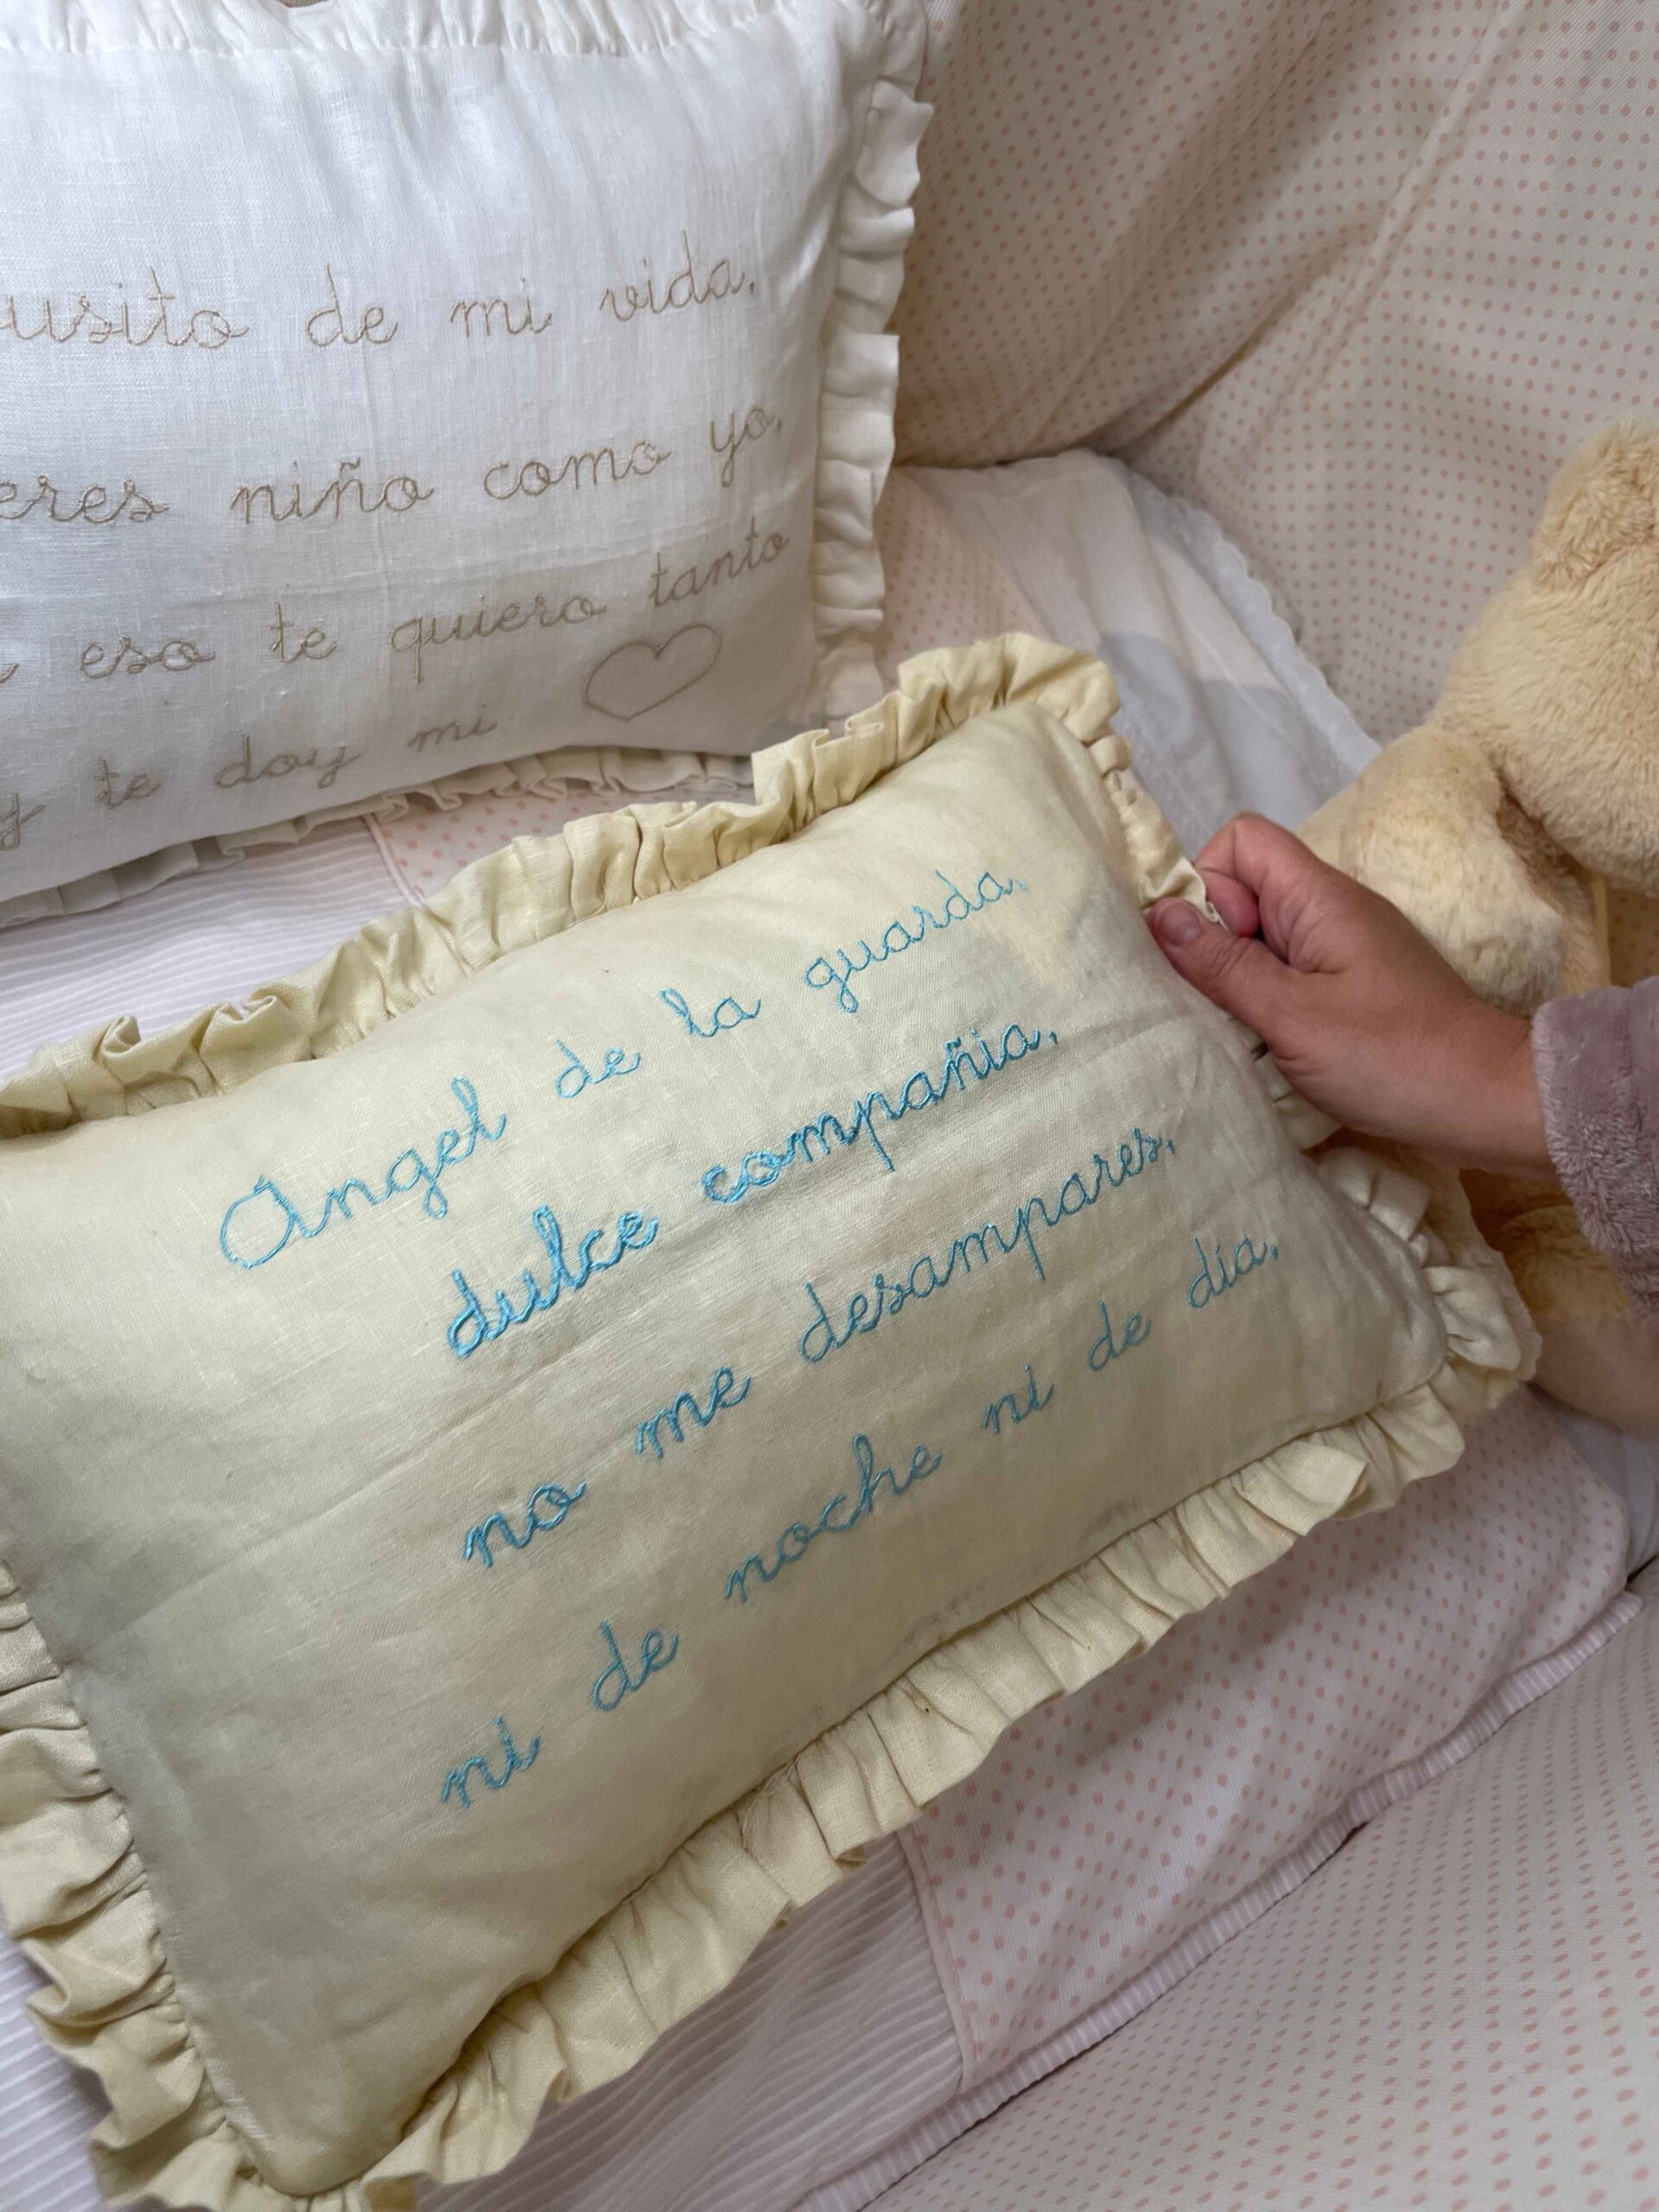 usito de mi vida,
eres niño como yo,
eso te quiero tanto
y te doy mi
Angel de la guarda,
dulce compañia,
no me desampares,
ni de noche ni de día,